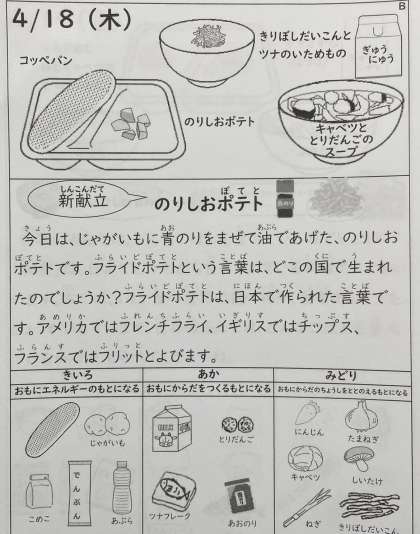 4/18（木）
B
きりぼしだいこんと
ツナのいためもの
ぎゅう
にゅう
コッペパン
のりしおポテト
キャベツと
とりだんごの
スープ
新献立
しんこんだて
のりしおポテト
ぽてと
今日は、じゃがいもに青のりをまぜて油であげた、のりしお
ポテトです。フライドポテトという言葉は、どこの国で生まれ
たのでしょうか？フライドポテトは、日本で作られた言葉で
す。アメリカではフレンチフライ、イギリスではチップス、
フランスではフリットとよびます。
きいろ
おもにエネルギーのもとになる
あか
おもにからだをつくるもとになる
みどり
おもにからだのちょうしをととのえるもとになる
じゃがいも
こめこ
でんぷん
あぶら
とりだんご
ツナフレーク
あおのり
にんじん
たまねぎ
キャベツ
しいたけ
ねぎ
きりぼしだいこん